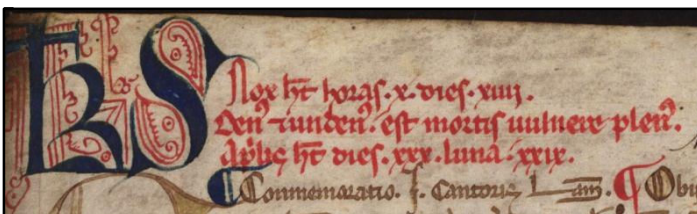 KL
Nox ħt horas .x. dies .xiiij.
Den⁹ ⁊ unden⁹ . est mortis uulnere plen⁹.
Aplis ħt dies .xxx. luna .xxix.
¶ Commemoratio .J. Cantoris ¶ Obi